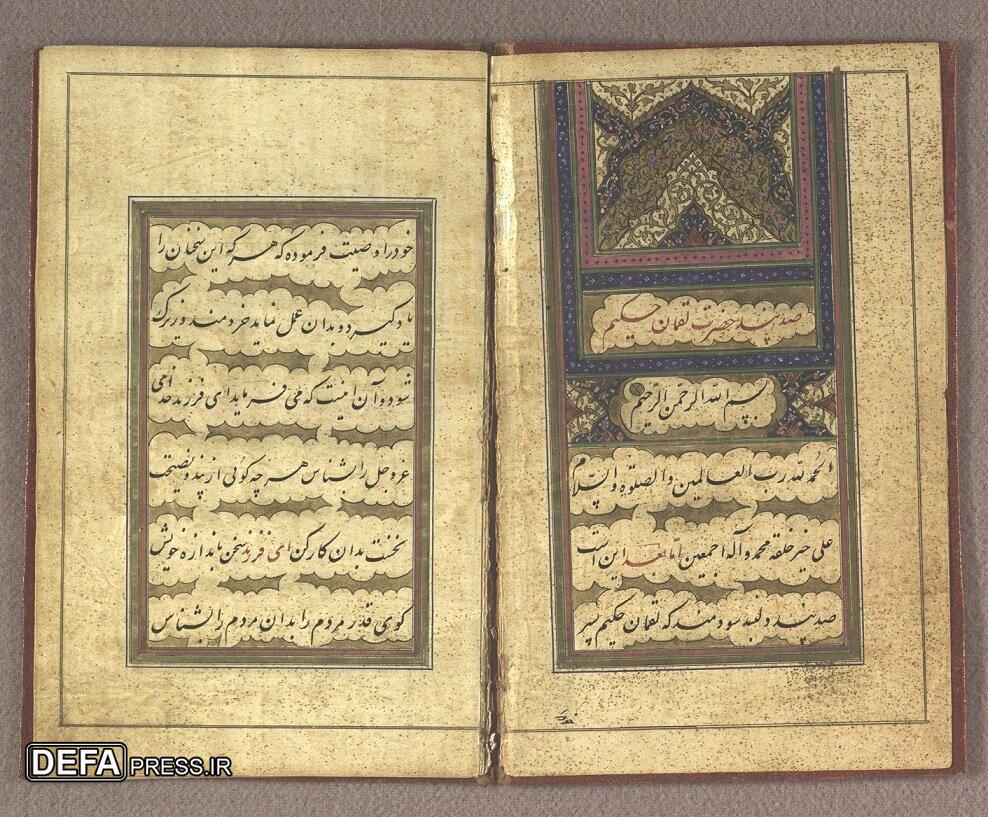 صد پند حضرت لقمان حکیم
بسم الله الرحمن الرحیم
الحمد لله رب العالمین والصلوة والسلام
علی خیر خلقه محمد وآله اجمعین اما بعد این است
صد پند دلبند سودمند که لقمان حکیم پسر
خود را وصیت فرموده که هر که این سخنان را
یاد گیرد و بدان عمل نماید خردمند و زیرک
شود و آن اینست که می فرماید ای فرزند خدای
عز و جل را بشناس هر چه گوئی از پند و نصیحت
نخست بدان کار کن ای فرزند سخن باندازه خویش
گوی قدر مردم را بدان مردم را بشناس
DEFAPRESS.IR